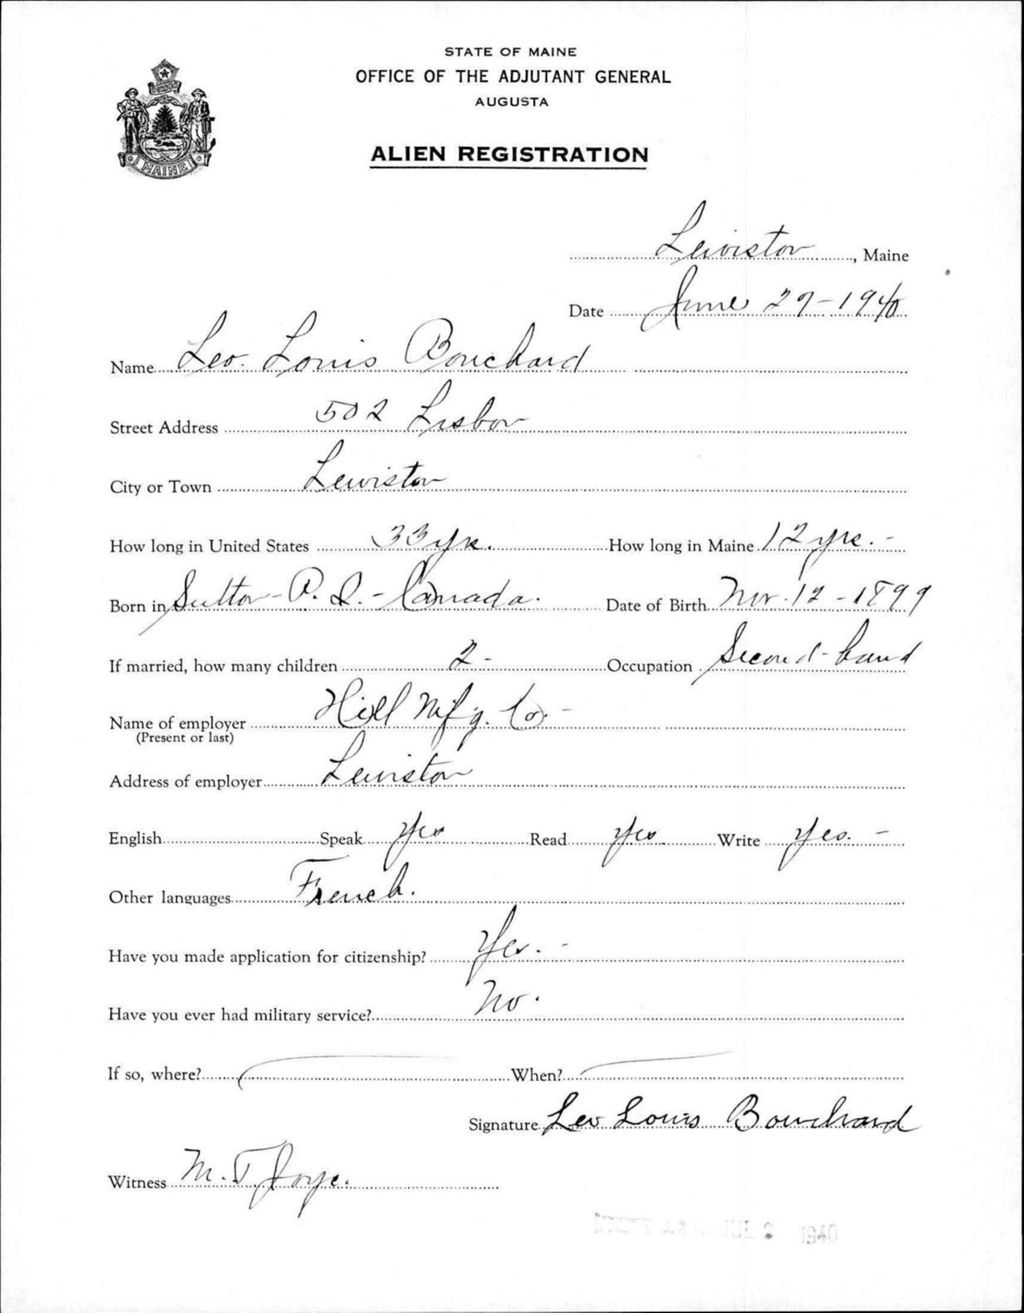 STATE OF MAINE
OFFICE OF THE ADJUTANT GENERAL
AUGUSTA
ALIEN REGISTRATION
MAINE
Lewiston, Maine
Date June 27-1940
Name Leo. Louis Bouchard
Street Address 502 Lisbon
City or Town Lewiston
How long in United States 33 yrs. How long in Maine 12 yrs. -
Born in Sutton - P. Q. - Canada. Date of Birth Nov. 12 - 1899
If married, how many children 2 - Occupation Second-hand
Name of employer Hill Mfg. Co. -
(Present or last)
Address of employer Lewiston
English Speak Yes Read Yes Write Yes. -
Other languages French.
Have you made application for citizenship? Yes. -
Have you ever had military service? No.
If so, where? When?
Signature Leo Louis Bouchard
Witness M. T. Joyce.
JUL 2 1940